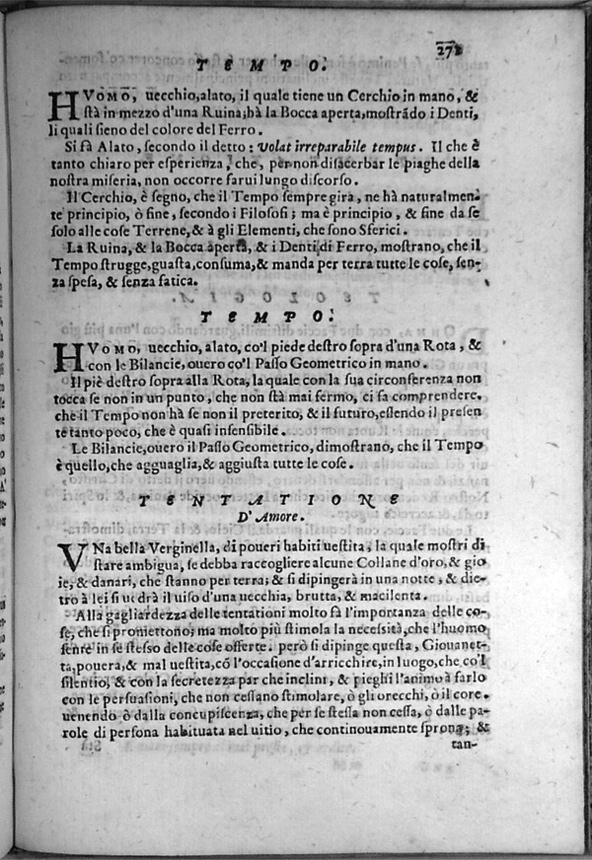 271
TEMPO.
HVOMO, uecchio, alato, il quale tiene un Cerchio in mano, &
ſtà in mezzo d'una Ruina, hà la Bocca aperta, moſtrãdo i Denti,
li quali ſieno del colore del Ferro.
Si fà Alato, ſecondo il detto: volat irreparabile tempus. Il che è
tanto chiaro per eſperienza, che, per non diſacerbar le piaghe della
noſtra miſeria, non occorre farui lungo diſcorſo.
Il Cerchio, è ſegno, che il Tempo ſempre gira, ne hà naturalmen-
te principio, ò fine, ſecondo i Filoſofi; ma è principio, & fine da ſe
ſolo alle coſe Terrene, & à gli Elementi, che ſono Sferici.
La Ruina, & la Bocca aperta, & i Denti di Ferro, moſtrano, che il
Tempo ſtrugge, guaſta, conſuma, & manda per terra tutte le coſe, ſen-
za ſpeſa, & ſenza fatica.
TEMPO.
HVOMO, uecchio, alato, co'l piede deſtro ſopra d'una Rota, &
con le Bilancie, ouero co'l Paſſo Geometrico in mano.
Il piè deſtro ſopra alla Rota, la quale con la ſua circonferenza non
tocca ſe non in un punto, che non ſtà mai fermo, ci fa comprendere,
che il Tempo non hà ſe non il preterito, & il futuro, eſſendo il preſen
te tanto poco, che è quaſi inſenſibile.
Le Bilancie, ouero il Paſſo Geometrico, dimoſtrano, che il Tempo
è quello, che agguaglia, & aggiuſta tutte le coſe.
TENTATIONE
D'Amore.
VNa bella Verginella, di poueri habiti ueſtita, la quale moſtri di
ſtare ambigua, ſe debba raccogliere alcune Collane d'oro, & gio
ie, & danari, che ſtanno per terra; & ſi dipingerà in una notte, & die-
tro à lei ſi uedrà il uiſo d'una uecchia, brutta, & macilenta.
Alla gagliardezza delle tentationi molto fà l'importanza delle co-
ſe, che ſi promettono; ma molto più ſtimola la neceſſità, che l'huomo
ſente in ſe ſteſſo delle coſe offerte. però ſi dipinge queſta, Giouanet-
ta, pouera, & mal ueſtita, cõ l'occaſione d'arricchire, in luogo, che co'l
ſilentio, & con la ſecretezza par che inclini, & pieghi l'animo à farlo
con le perſuaſioni, che non ceſſano ſtimolare, ò gli orecchi, ò il core.
uenendo ò dalla concupiſcenza, che per ſe ſteſſa non ceſſa, ò dalle pa-
role di perſona habituata nel uitio, che continouamente ſprona; &
tan-